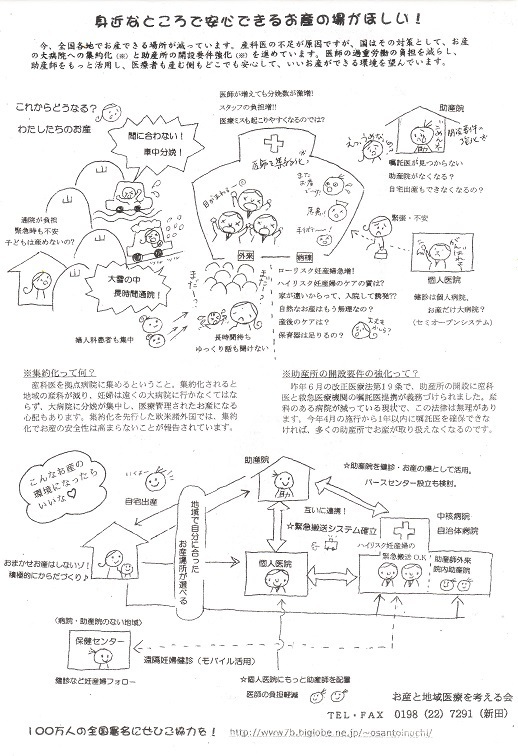 身近なところで安心できるお産の場がほしい！
今、全国各地でお産できる場所が減っています。産科医の不足が原因ですが、国はその対策として、お産
の大病院への集約化（※）と助産所の開設要件強化（※）を進めています。医師の過重労働の負担を減らし、
助産師をもっと活用し、医療者も産む側もどこでも安心して、いいお産ができる環境を望んでいます。
これからどうなる？
わたしたちのお産
間に合わない！
車中分娩！
山
山
山
通院が負担
緊急時も不安
子どもは産めないの？
大雪の中
長時間通院！
婦人科患者も集中
医師が増えても分娩数が激増！
スタッフの負担増！！
医療ミスも起こりやすくなるのでは？
医師を集約化
目がまわる〜
外来
病棟
まだ〜？
まだ〜？
長時間待ち
ゆっくり話も聞けない
ローリスク妊産婦急増！
ハイリスク妊産婦のケアの質は？
家が遠いからって、入院して誘発？？
自然なお産はもう無理なの？
産後のケアは？
保育器は足りるの？
助産院
嘱託医が見つからない
助産院がなくなる？
自宅出産もできなくなるの？
緊張・不安
個人医院
健診は個人病院、
お産だけ大病院？
（セミオープンシステム）
※集約化って何？
産科医を拠点病院に集めるということ。集約化されると
地域の産科が減り、妊婦は遠くの大病院に行かなくてはな
らず、大病院に分娩が集中し、医療管理されたお産になる
心配もあります。集約化を先行した欧米諸国では、集約
化でお産の安全性は高まらないことが報告されています。
※助産所の開設要件の強化って？
昨年６月の改正医療法第１９条で、助産所の開設に産科
医と救急医療機関の嘱託医提携が義務づけられました。産
科のある病院が減っている現状で、この法律は無理があり
ます。今年４月の施行から１年以内に嘱託医を確保できな
ければ、多くの助産所でお産が取り扱えなくなるのです。
こんなお産の
環境になったら
いいな♡
自宅出産
おまかせお産はしないゾ！
積極的にからだづくり♪
地域で自分に合った
お産場所が選べる
助産院
☆助産院を健診・お産の場として活用。
バースセンター設立も検討。
互いに連携！
☆緊急搬送システム確立
個人医院
中核病院
自治体病院
ハイリスク妊産婦の
緊急搬送 O.K
助産師外来
院内助産院
（病院・助産院のない地域）
保健センター
健診など妊産婦フォロー
遠隔妊婦健診（モバイル活用）
☆個人医院にもっと助産師を配置
医師の負担軽減
お産と地域医療を考える会
ＴＥＬ・ＦＡＸ　0198（22）7291（新田）
１００万人の全国署名にぜひご協力を！　http://www7b.biglobe.ne.jp/~osantoinochi/